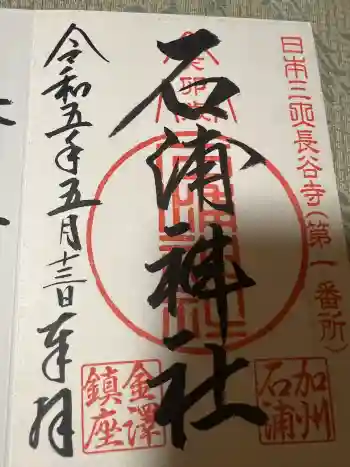 日本三所長谷寺(第一番所)
石浦神社
加州
石浦
令和五年五月十三日 奉拝
金澤
鎮座